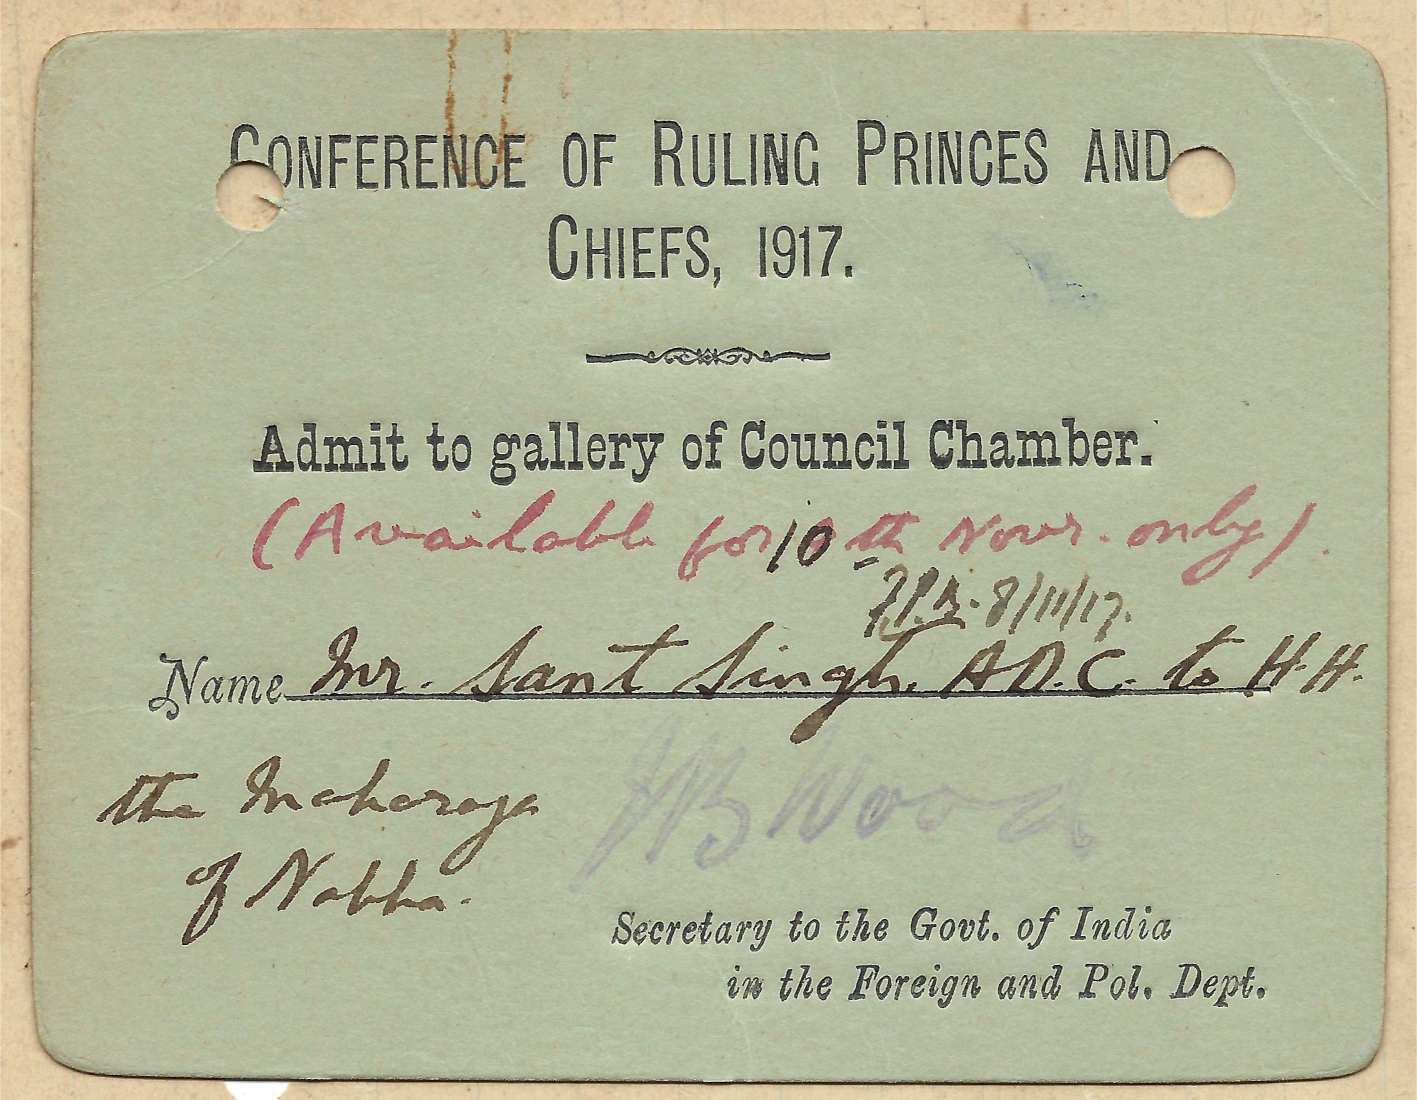 CONFERENCE OF RULING PRINCES AND
CHIEFS, 1917.
Admit to gallery of Council Chamber.
(Available for 10 th Novr. only).
8/11/17.
Name Mr. Sant Singh. A.D.C. to H.H.
the Maharaja
of Nabha.
JB Wood
Secretary to the Govt. of India
in the Foreign and Pol. Dept.